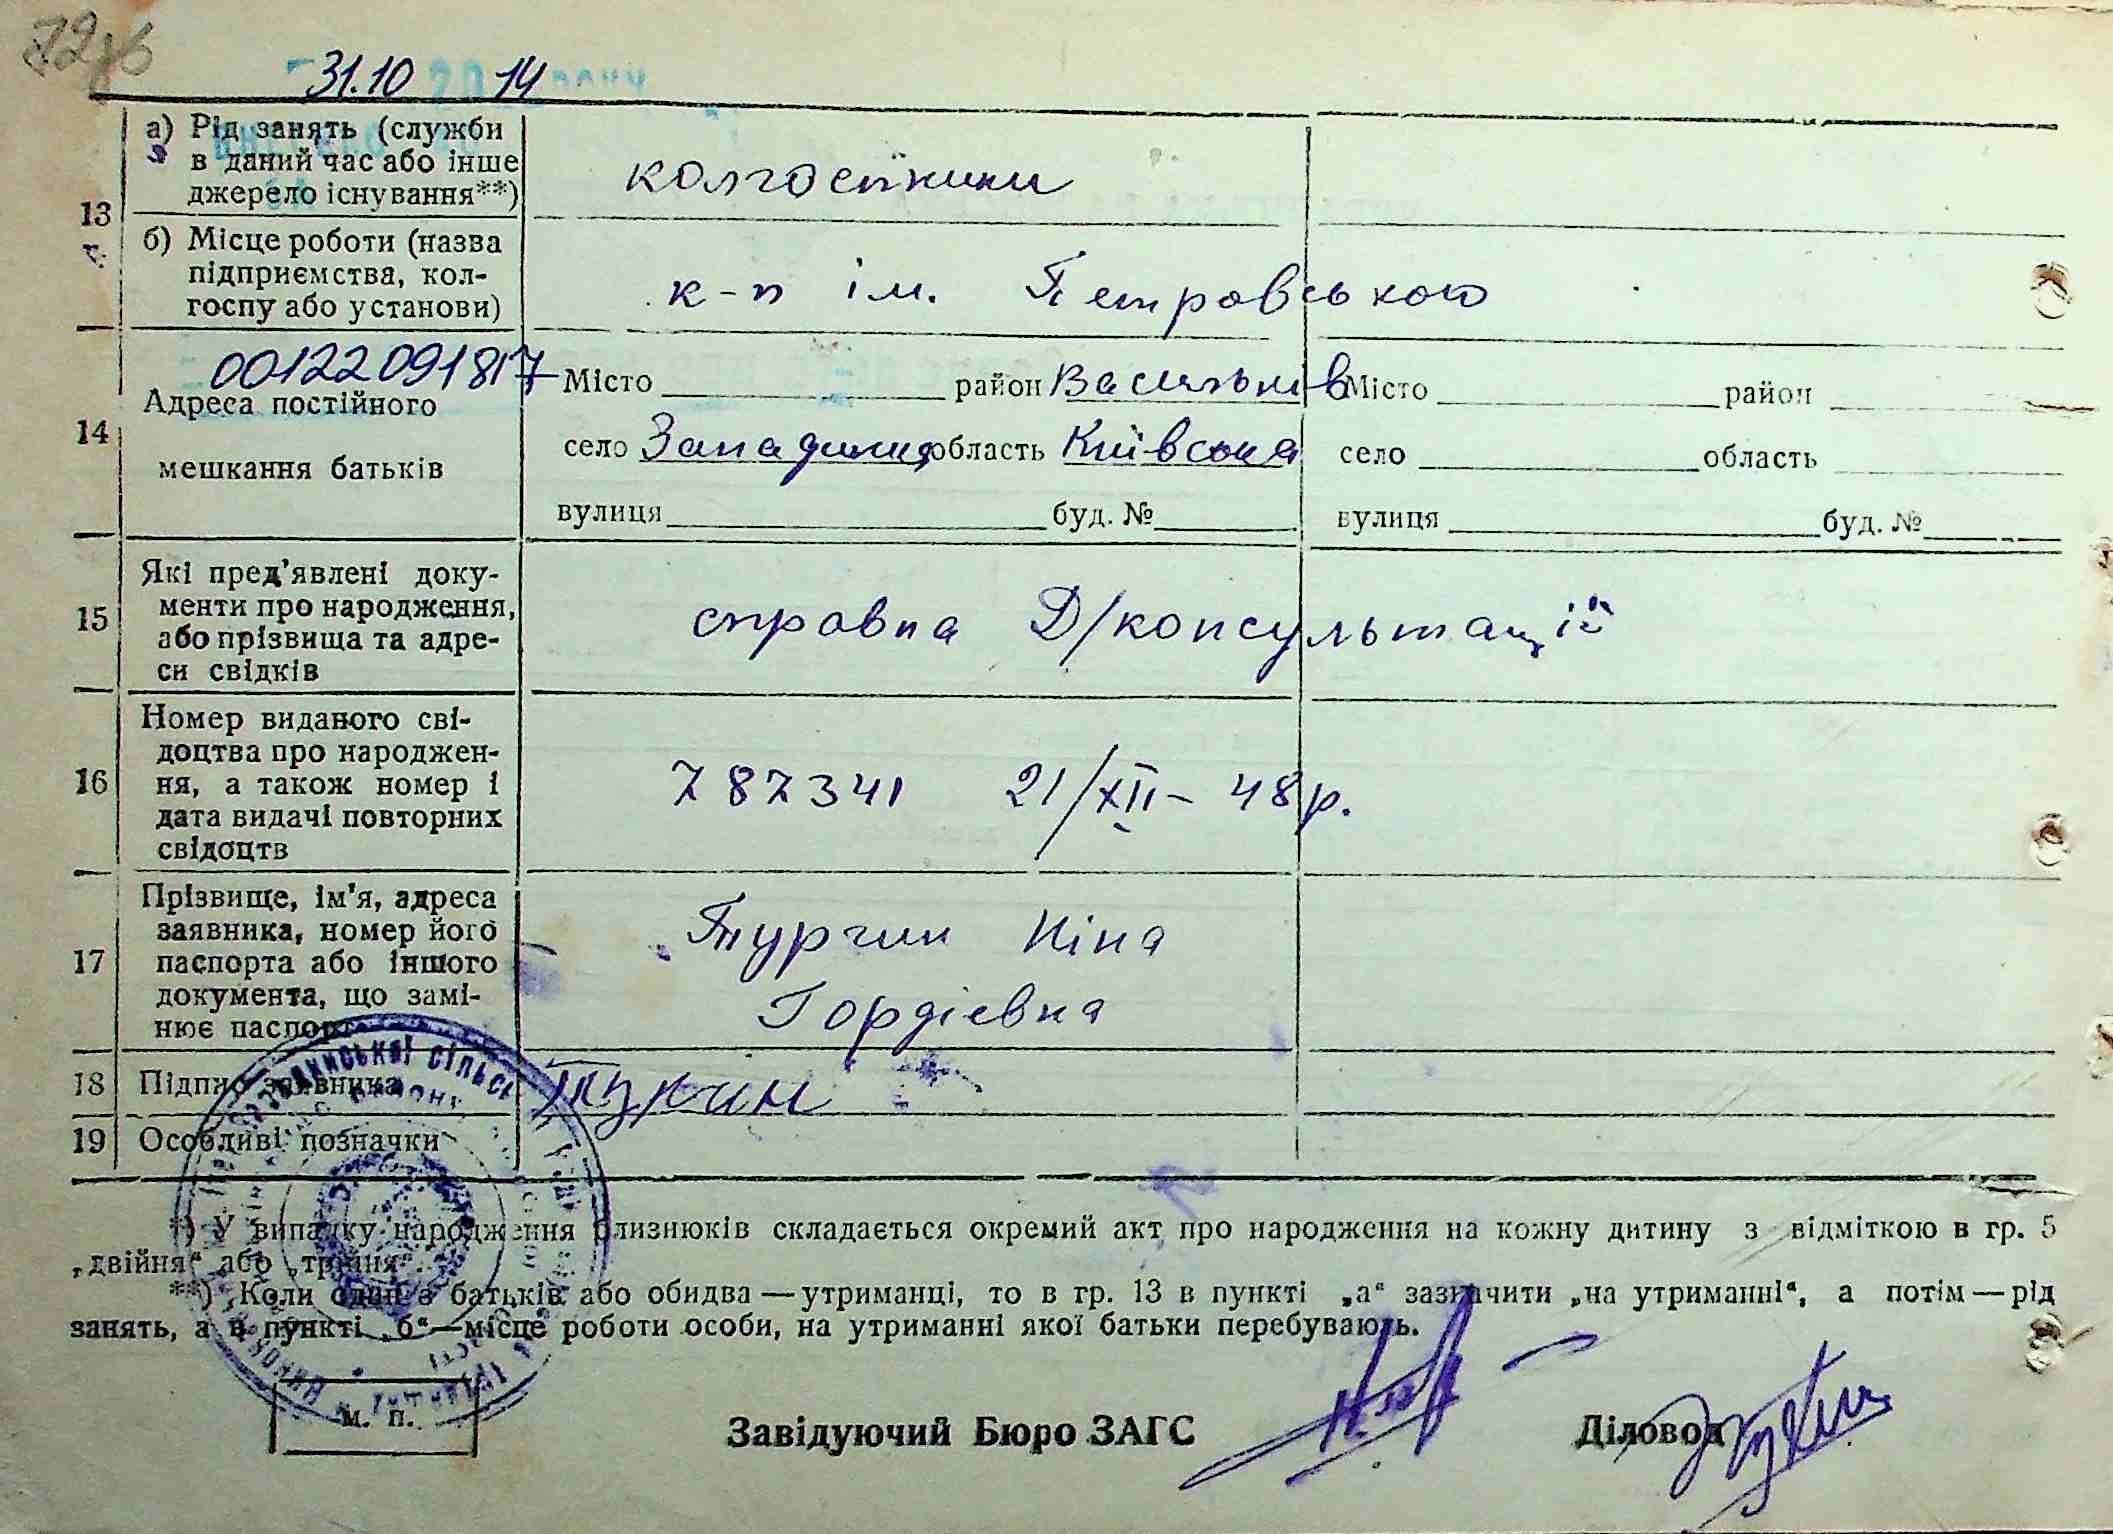 31.10 2014 року
13 а) Рід занять (служби
в даний час або інше
джерело існування**)
колгоспники
б) Місце роботи (назва
підприємства, кол-
госпу або установи)
к-п ім. Петровського
00122091817
14 Адреса постійного
мешкання батьків
Місто район Васильків
село Западинка область Київська
вулиця буд. №
Місто район
село область
вулиця буд. №
15 Які пред'явлені доку-
менти про народження,
або прізвища та адре-
си свідків
справка Д/консультації
16 Номер виданого сві-
доцтва про народжен-
ня, а також номер і
дата видачі повторних
свідоцтв
787341 21/XII - 48 р.
17 Прізвище, ім'я, адреса
заявника, номер його
паспорта або іншого
документа, що замі-
нює паспорт
Турчин Ніна
Гордієвна
18 Підпис заявника
Турчин
19 Особливі позначки
*) У випадку народження близнюків складається окремий акт про народження на кожну дитину з відміткою в гр. 5
„двійня“ або „трійня“.
**) Коли один з батьків або обидва — утриманці, то в гр. 13 в пункті „а“ зазначити „на утриманні“, а потім — рід
занять, а в пункті „б“ — місце роботи особи, на утриманні якої батьки перебувають.
м. п.
Завідуючий Бюро ЗАГС
Діловод